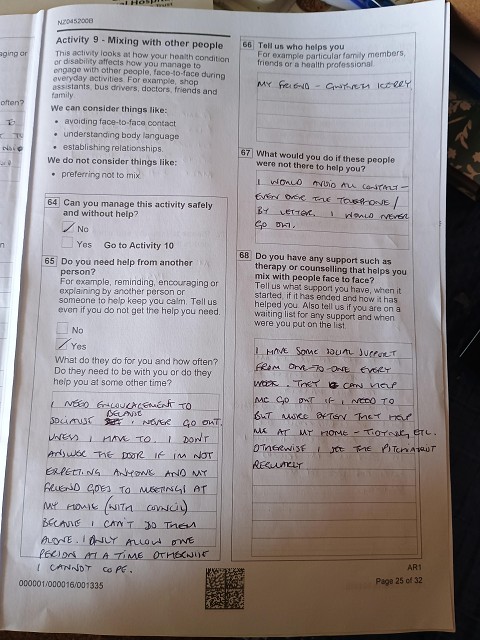 al Hospi
Trust
NZ045200B
Activity 9 - Mixing with other people
This activity looks at how your health condition
or disability affects how you manage to
engage with other people, face-to-face during
everyday activities. For example, shop
assistants, bus drivers, doctors, friends and
family.
We can consider things like:
• avoiding face-to-face contact
• understanding body language
• establishing relationships.
We do not consider things like:
• preferring not to mix
64 Can you manage this activity safely
and without help?
No
Yes Go to Activity 10
65 Do you need help from another
person?
For example, reminding, encouraging or
explaining by another person or
someone to help keep you calm. Tell us
even if you do not get the help you need.
No
Yes
What do they do for you and how often?
Do they need to be with you or do they
help you at some other time?
I NEED ENCOURAGEMENT TO
SOCIALISE BECAUSE I NEVER GO OUT.
UNLESS I HAVE TO. I DON'T
ANSWER THE DOOR IF IM NOT
EXPECTING ANYONE AND MY
FRIEND GOES TO MEETINGS AT
MY HOME (WITH COUNCIL)
BECAUSE I CAN'T DO THEM
ALONE. I ONLY ALLOW ONE
PERSON AT A TIME OTHERWISE
I CANNOT COPE.
66 Tell us who helps you
For example particular family members,
friends or a health professional.
MY FRIEND -
67 What would you do if these people
were not there to help you?
I WOULD AVOID ALL CONTACT -
EVEN OVER THE TELEPHONE /
BY LETTER. I WOULD NEVER
GO OUT.
68 Do you have any support such as
therapy or counselling that helps you
mix with people face to face?
Tell us what support you have, when it
started, if it has ended and how it has
helped you. Also tell us if you are on a
waiting list for any support and when
were you put on the list.
I HAVE SOME SOCIAL SUPPORT
FROM ONE-TO-ONE EVERY
WEEK. THEY CAN HELP
ME GO OUT IF I NEED TO
BUT MORE OFTEN THEY HELP
ME AT MY HOME - TIDYING ETC.
OTHERWISE I SEE THE
REGULARLY
000001/000016/001335
AR1
Page 25 of 32
aging or
often?